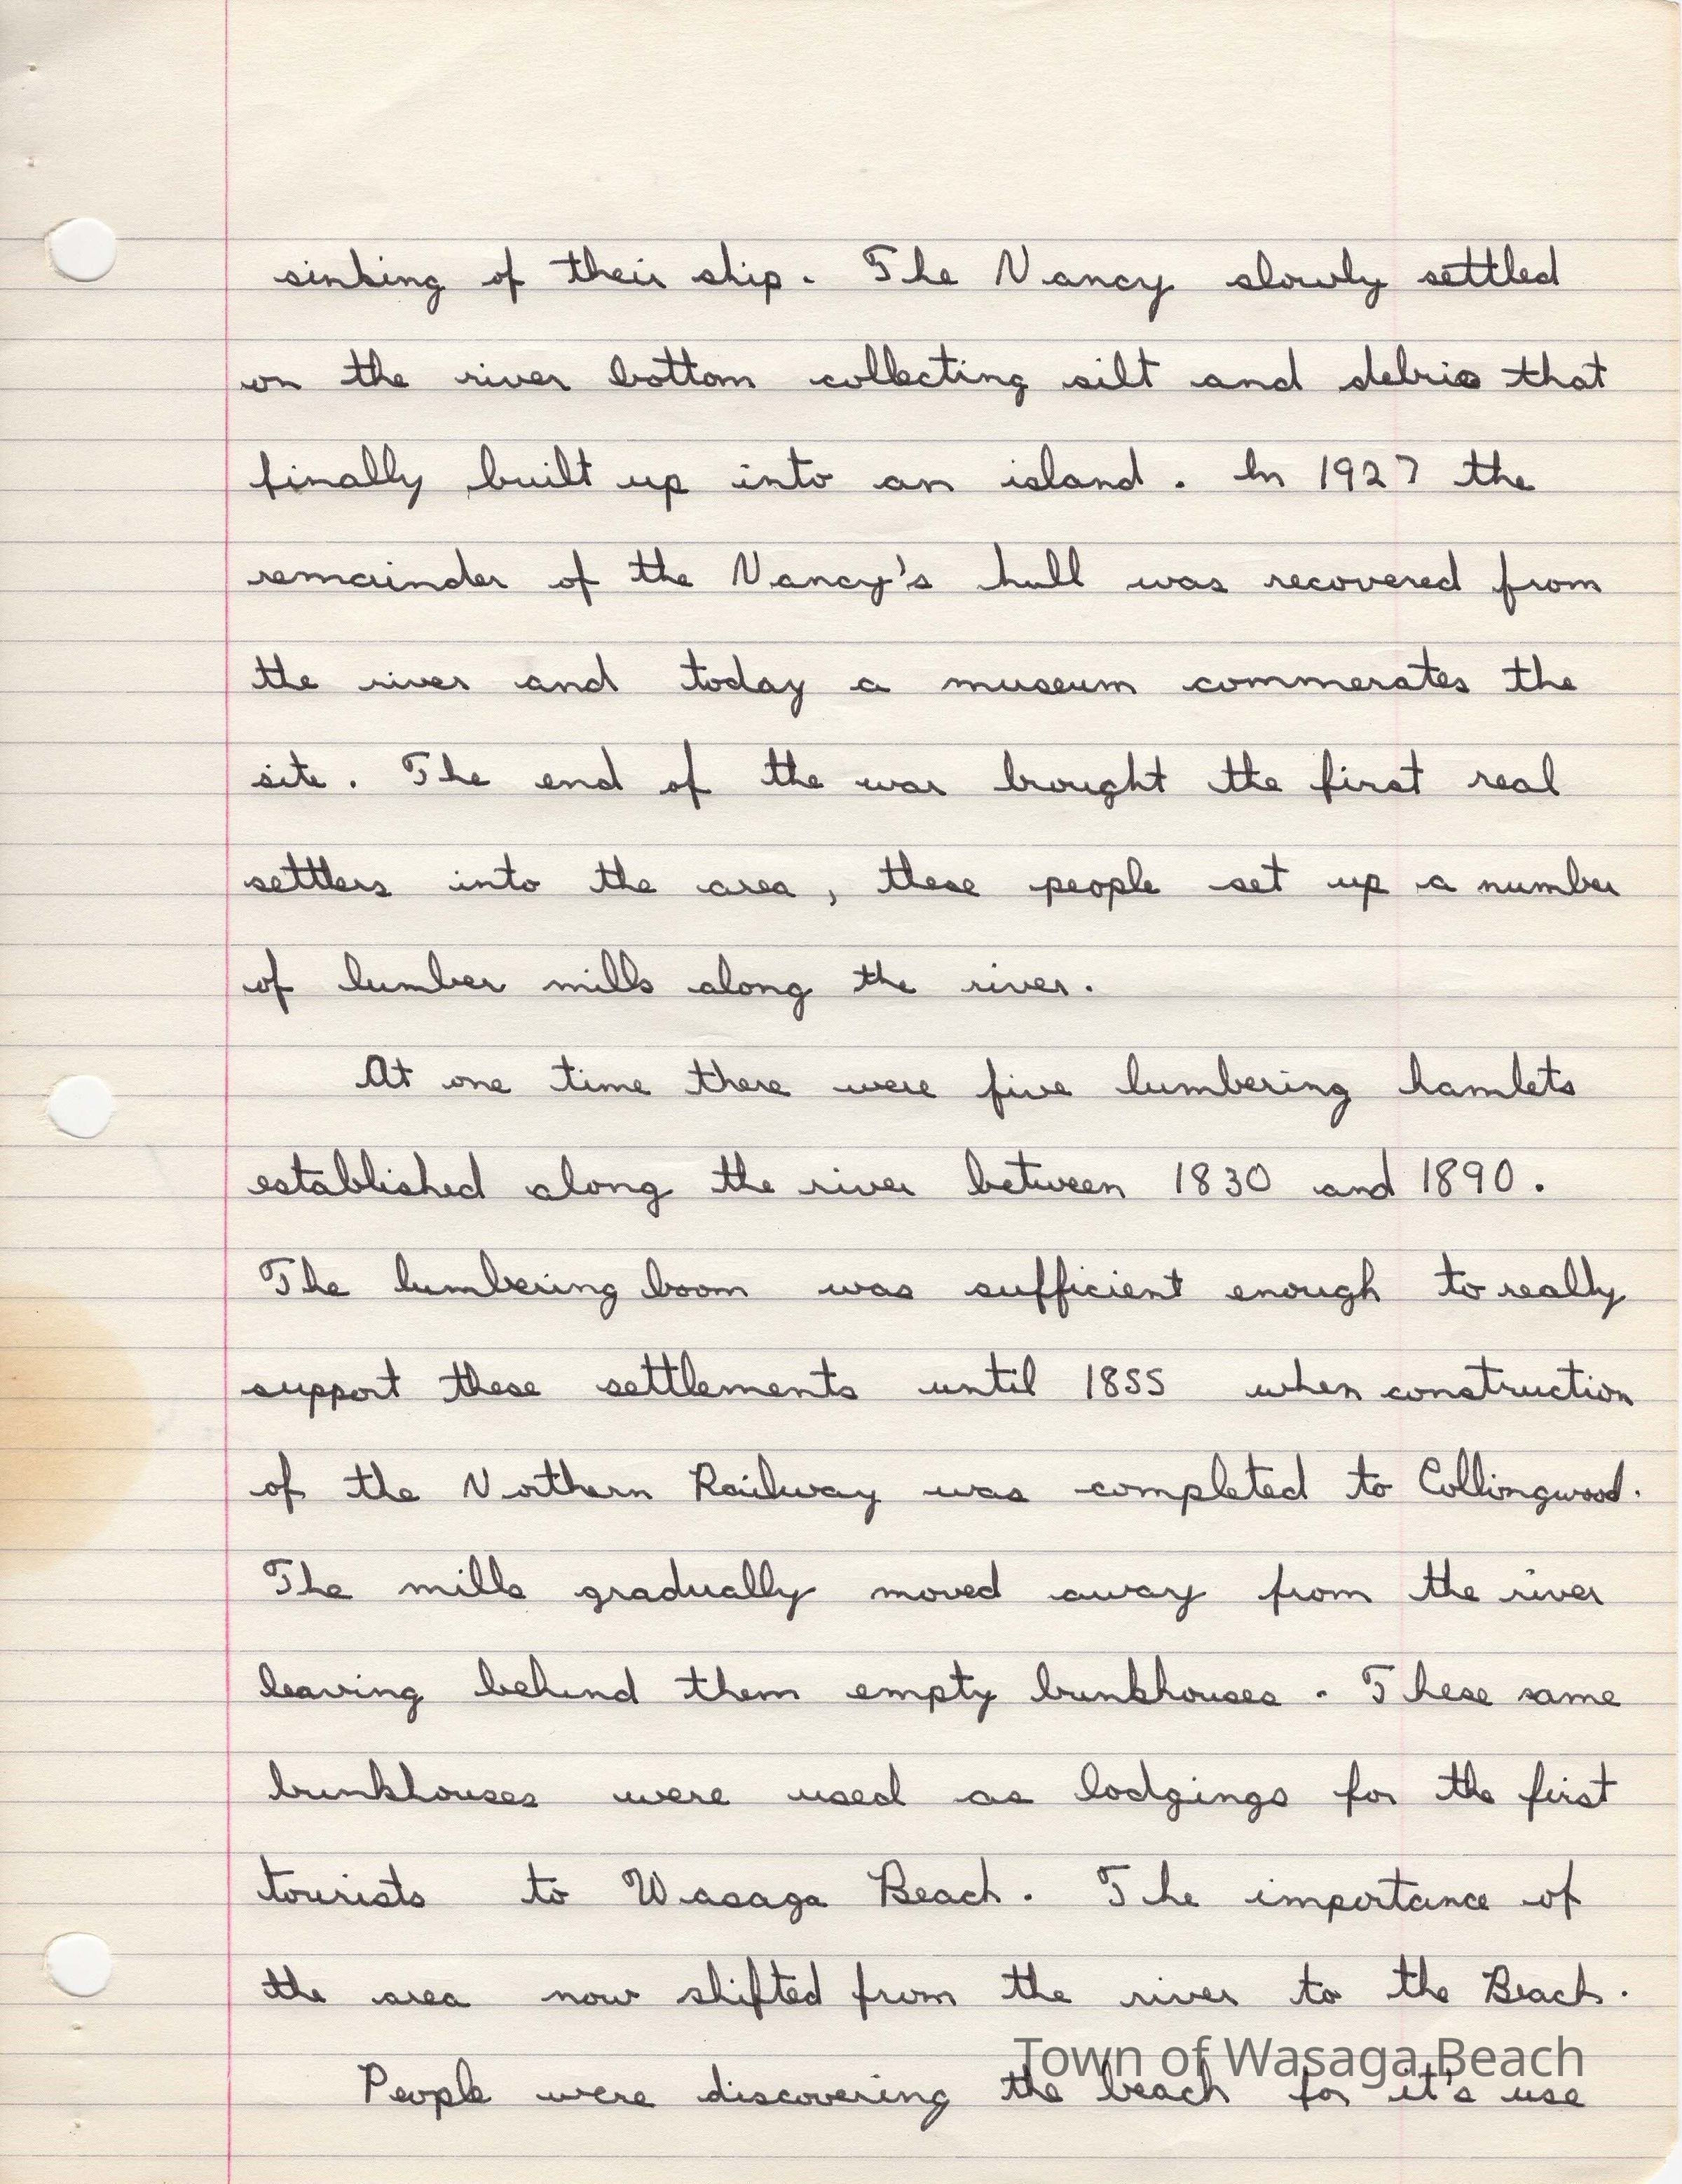 sinking of their ship. The Nancy slowly settled
on the river bottom collecting silt and debris that
finally built up into an island. In 1927 the
remainder of the Nancy's hull was recovered from
the river and today a museum commerates the
site. The end of the war brought the first real
settlers into the area, these people set up a number
of lumber mills along the river.
At one time there were five lumbering hamlets
established along the river between 1830 and 1890.
The lumbering boom was sufficient enough to really
support these settlements until 1855 when construction
of the Northern Railway was completed to Collingwood.
The mills gradually moved away from the river
leaving behind them empty bunkhouses. These same
bunkhouses were used as lodgings for the first
tourists to Wasaga Beach. The importance of
the area now shifted from the river to the Beach.
Town of Wasaga Beach
People were discovering the beach for it's use